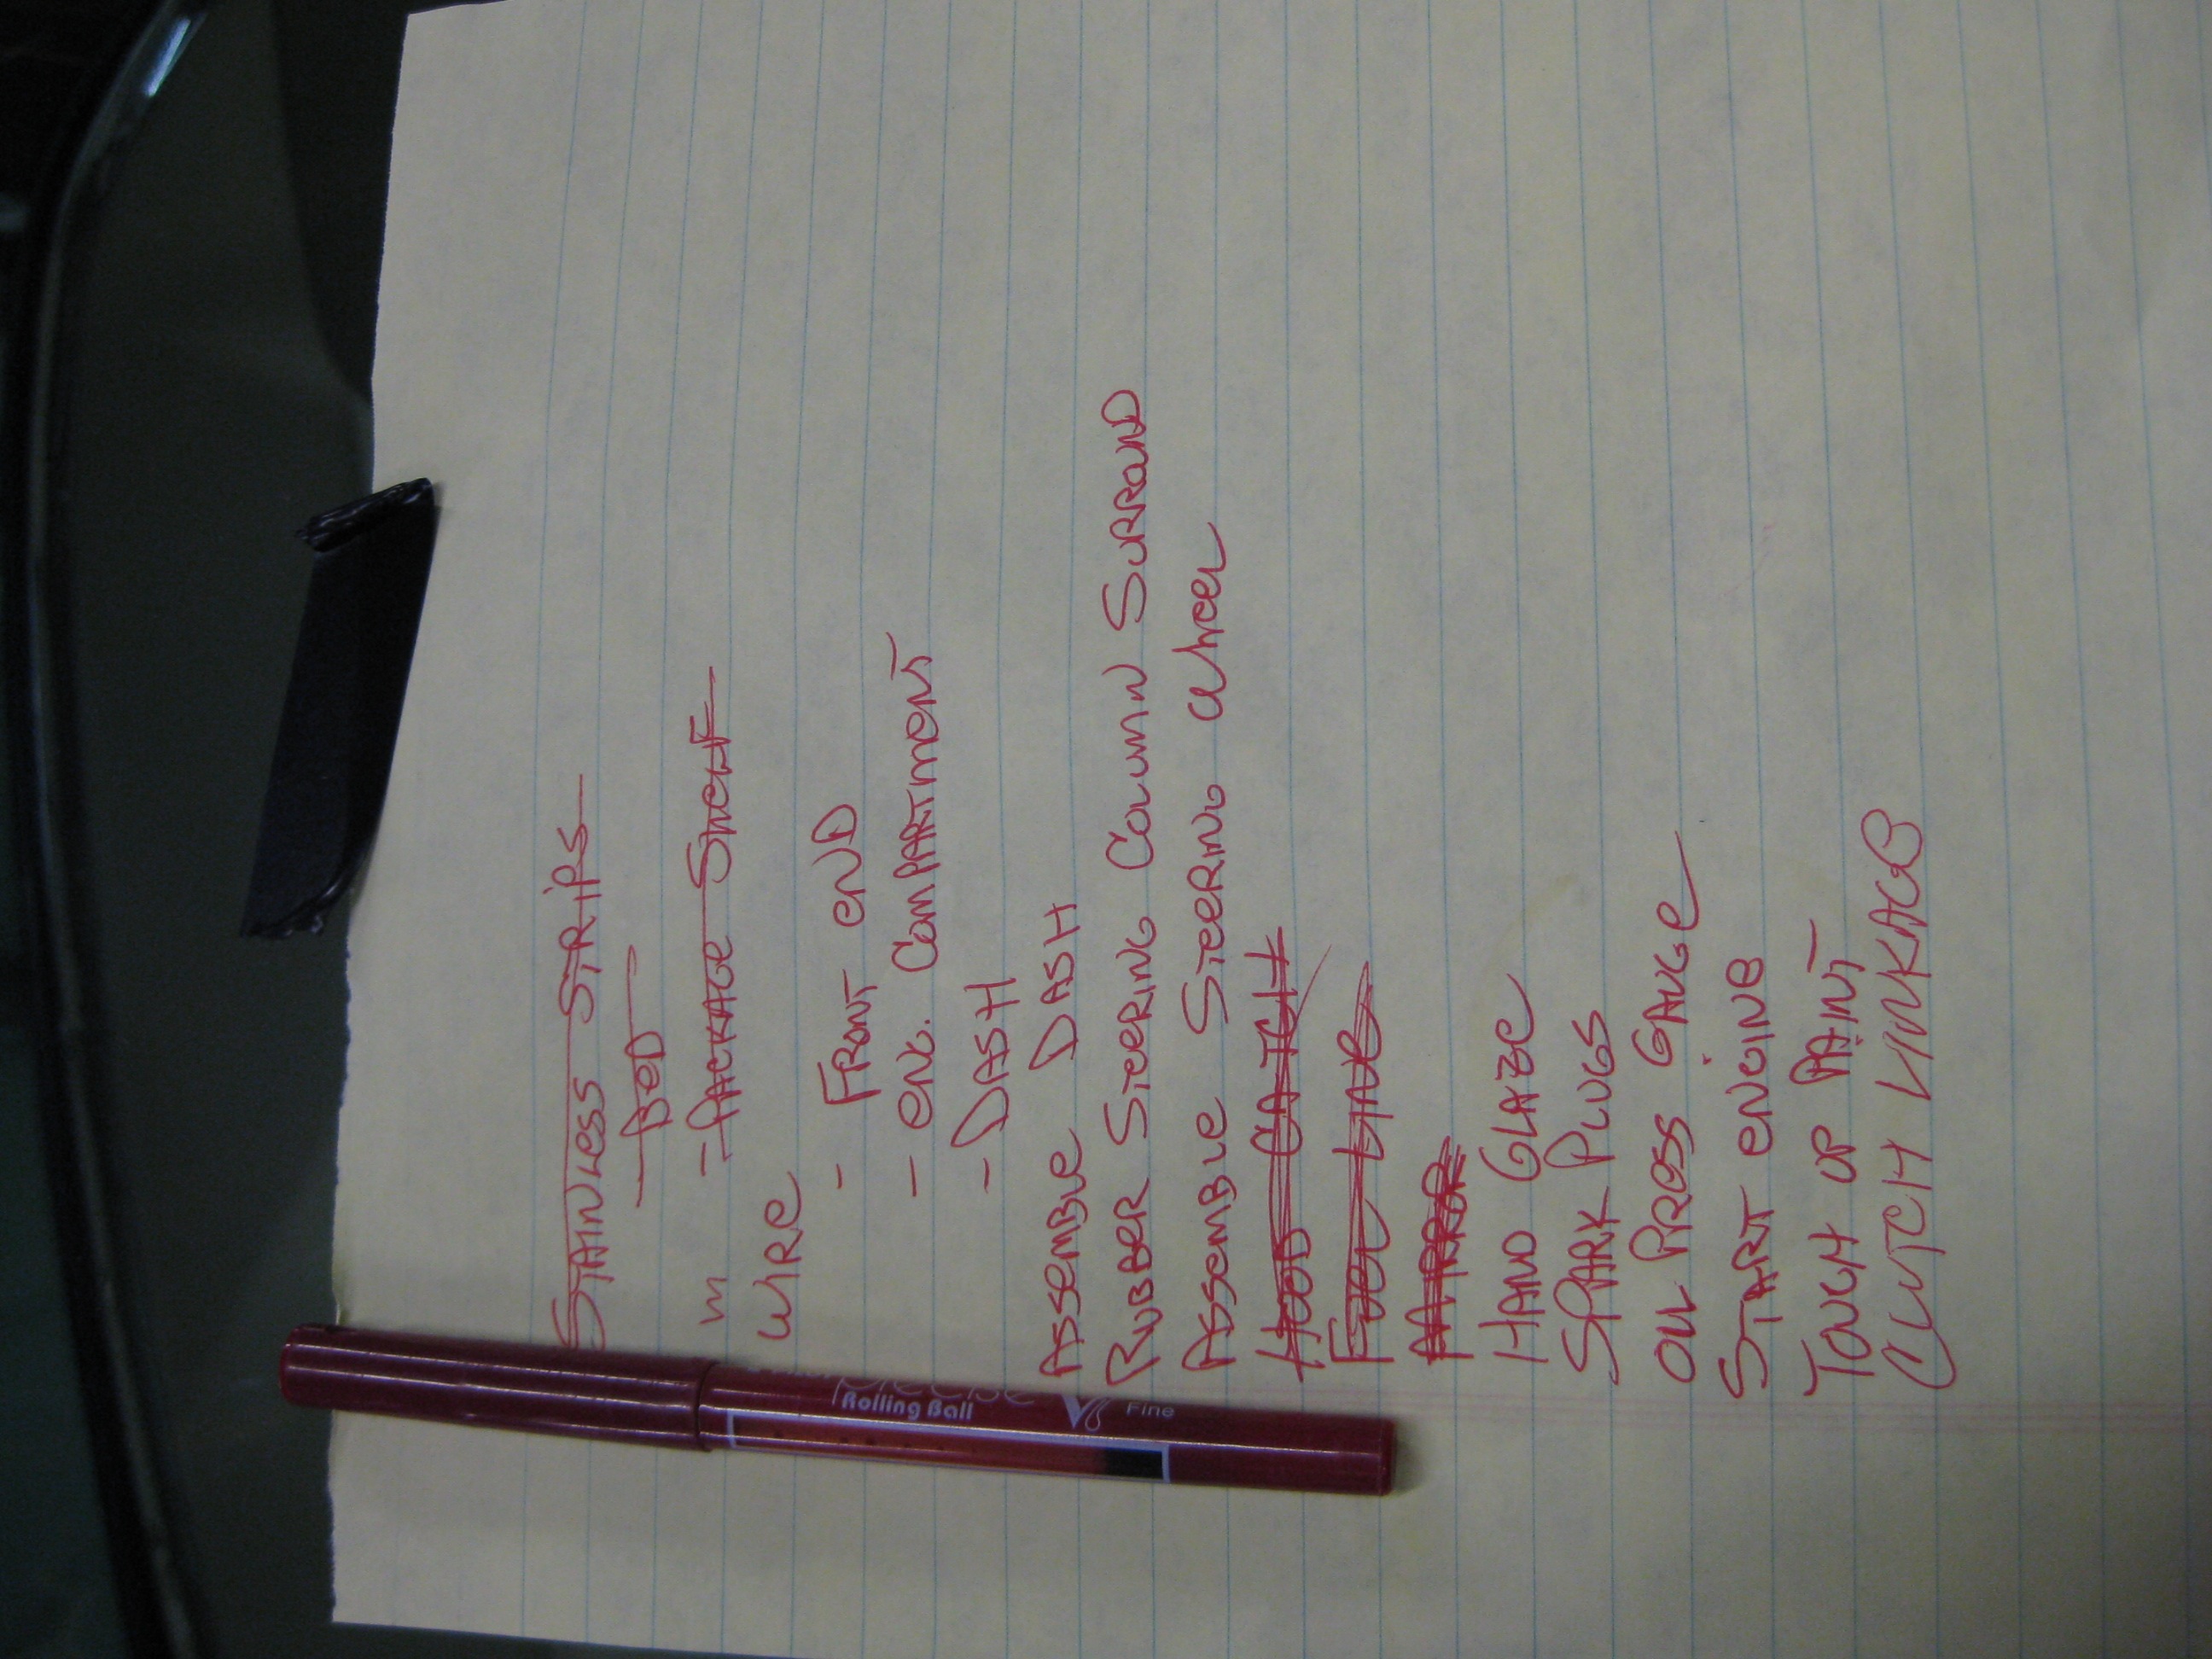 STAINLESS STRIPS
- BED
m - PACKAGE SHELF
WIRE
- FRONT END
- ENG. COMPARTMENT
- DASH
ASSEMBLE DASH
RUBBER STEERING COLUMN SURROUND
ASSEMBLE STEERING WHEEL
HOOD CATCH
FUEL LINE
MIRROR
HAND GLAZE
SPARK PLUGS
OIL PRESS GAUGE
START ENGINE
TOUCH UP PAINT
CLUTCH LINKAGE
Precise V5 Fine
Rolling Ball